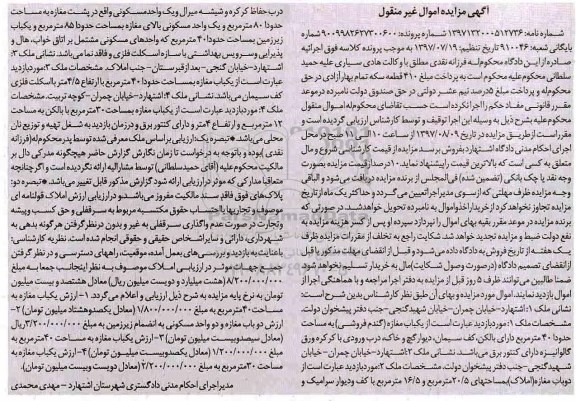 آگهی مزایده اموال غیر منقول
شماره نامه: ۱۳۹۷۱۳۲۰۰۰۵۱۲۷۳۶ شماره پرونده: ۹۰۰۹۹۸۲۶۲۷۳۰۰۶۰۰ شماره
بایگانی شعبه: ۹۱۰۰۴۶ تاریخ تنظیم: ۱۳۹۷/۰۷/۱۹ به موجب پرونده کلاسه فوق اجرائیه
صادره از این دادگاه محکوم‌له فرزانه نقدی مطلق با وکالت هادی سیاری علیه حمید
سلطانی محکوم‌علیه محکوم است به پرداخت مبلغ ۴۱۰ قطعه سکه تمام بهار آزادی در حق
محکوم‌له و پرداخت مبلغ ۵درصد نیم عشر دولتی در حق صندوق دولت نامبرده در موعد
مقرر قانونی مفاد حکم را اجرا نکرده است حسب تقاضای محکوم‌له اموال منقول
محکوم علیه بشرح ذیل به وسیله این اجرا توقیف و توسط کارشناس ارزیابی گردیده است و
مقرر است از طریق مزایده در تاریخ ۱۳۹۷/۰۸/۰۹ از ساعت ۱۰ الی ۱۱ صبح در دفتر
اجرای احکام مدنی دادگاه اشتهارد بفروش برسد مزایده از قیمت کارشناسی شروع و مال
متعلق به کسی است که بالاترین قیمت را پیشنهاد نماید. ۱۰درصد از قیمت مزایده بصورت
وجه نقد یا چک بانکی (تضمین شده) فی‌المجلس از برنده مزایده دریافت می‌شود و الباقی
وجه مزایده ظرف مهلتی که از سوی مدیر اجرا تعیین می‌گردد و حداکثر یک ماه از تاریخ
مزایده تجاوز نخواهد کرد از خریدار اخذ و اموال به نامبرده تحویل خواهد شد. در صورتی که
برنده مزایده در موعد مقرر بقیه بهای اموال را نپردازد سپرده او پس از کسر هزینه مزایده به
نفع دولت ضبط و مزایده تجدید خواهد شد. شکایت راجع به تخلف از مقررات مزایده ظرف
یک هفته از تاریخ فروش به دادگاه داده می‌شود و قبل از انقضای مهلت مذکور یا قبل
از انقضای تصمیم دادگاه (در صورت وصول شکایت) مال به خریدار تسلیم نخواهد شد.
ضمنا طالبین می‌توانند ظرف ۵ روز قبل از مزایده به دفتر اجرا مراجعه و با هماهنگی اجرا از
اموال بازدید نمایند. اموال مورد مزایده و بهای آن طبق نظر کارشناس بدین شرح است:
نشانی ملک ۱: اشتهارد-خیابان چمران-خیابان شهید گنجی-جنب دفتر پیشخوان دولت.
مشخصات ملک ۱: مورد بازدید عبارت است از یکباب مغازه (گندم فروشی) به مساحت
حدودا ۴۰ مترمربع دارای بالکن، کف سیمان، دیوار گچ و خاک، درب ورودی با کرکره ورق
گالوانیزه دارای کنتور برق می‌باشد. نشانی ملک ۲: اشتهارد-خیابان چمران-خیابان
شهید گنجی-جنب دفتر پیشخوان دولت. مشخصات ملک ۲: مورد بازدید عبارت است از
دوباب مغازه (املاک)، بمساحتهای ۲۰/۵ مترمربع و ۱۶/۵ مترمربع با کف و دیوار سرامیک و
درب حفاظ کرکره و شیشه میرال و یک واحد مسکونی واقع در پشت مغازه به مساحت
حدودا ۸۰ مترمربع و یک واحد مسکونی بالای مغازه بمساحت حدودا ۸۵ مترمربع و یکباب
زیرزمین بمساحت حدودا ۴۰ مترمربع که واحدهای مسکونی مشتمل بر اتاق خواب، هال و
پذیرایی و سرویس بهداشتی با سازه اسکلت فلزی و فاقد نما می‌باشد. نشانی ملک ۳:
اشتهارد-خیابان گنجی-بعد از قبرستان-جنب املاک. مشخصات ملک ۳: مورد بازدید
عبارت است از یکباب مغازه بمساحت حدودا ۴۰ مترمربع با ارتفاع ۴/۵ متر با اسکلت فلزی
کف سیمان می‌باشد. نشانی ملک ۴: اشتهارد-خیابان چمران-کوچه تربیت. مشخصات
ملک ۴: مورد بازدید عبارت است از یکباب مغازه بمساحت ۳۰ مترمربع با بالکن به مساحت
۱۲ مترمربع و ارتفاع ۴ متر و دارای کنتور برق و در زمان بازدید به شغل تهیه و توزیع نان
محلی می‌باشد. *تبصره یک: ارزیابی بر اساس ملک معرفی شده توسط پدر محکوم‌له (فرزانه
نقدی) بوده و باتوجه به درخواست تا زمان نگارش گزارش حاضر هیچگونه مدرکی دال بر
مالکیت محکوم‌علیه (آقای حمید سلطانی) توسط مشارالیه ارائه نگردیده است و اگر چنانچه
متعاقبا مدارکی که موثر در ارزیابی ارائه شود گزارش مذکور قابل تغییر می‌باشد. *تبصره دو:
پلاک‌های فوق فاقد سند مالکیت مفروز می‌باشند و در ارزیابی ارزش املاک قولنامه ای
موصوف و تجاری‌ها با احتساب حقوق مکتسبه مربوط به سرقفلی و حق کسب و پیشه
و تجارت در صورت عدم واگذاری سرقفلی به غیر و بدون در نظر گرفتن هر گونه بدهی به
شهرداری، دارائی و سایر اشخاص حقیقی و حقوقی انجام شده است. نظریه کارشناسی:
با عنایت به بازدید و بررسی‌های بعمل آمده، موقعیت، راه‌های دسترسی و در نظر گرفتن
سایر عوامل موثر در ارزیابی املاک موصوف به نظر اینجانب جمعا به مبلغ
۸/۲۲۰/۰۰۰/۰۰۰ (هشت میلیارد و دویست میلیون ریال) معادل هشتصد و بیست میلیون
تومان به نرخ پایه مزایده به شرح ذیل ارزیابی و اعلام می‌گردد. ۱- ارزش یکباب مغازه به
مساحت ۴۰ مترمربع به مبلغ ۱/۸۰۰/۰۰۰/۰۰۰ (معادل یکصد و هشتاد میلیون تومان) ۲-
ارزش دو باب مغازه و دو واحد مسکونی به انضمام زیرزمین به مبلغ ۳/۲۰۰/۰۰۰/۰۰۰ ریال
(معادل سیصد و بیست میلیون تومان) ۳- ارزش یکباب مغازه به مساحت ۴۰ مترمربع به
مبلغ ۱/۲۰۰/۰۰۰/۰۰۰ (معادل یکصد و بیست میلیون تومان) ۴- ارزش یکباب مغازه به
مساحت ۳۰ مترمربع به مبلغ ۲/۲۰۰/۰۰۰/۰۰۰ (معادل دویست و بیست میلیون تومان).
مدیر اجرای احکام مدنی دادگستری شهرستان اشتهارد - مهدی محمدی